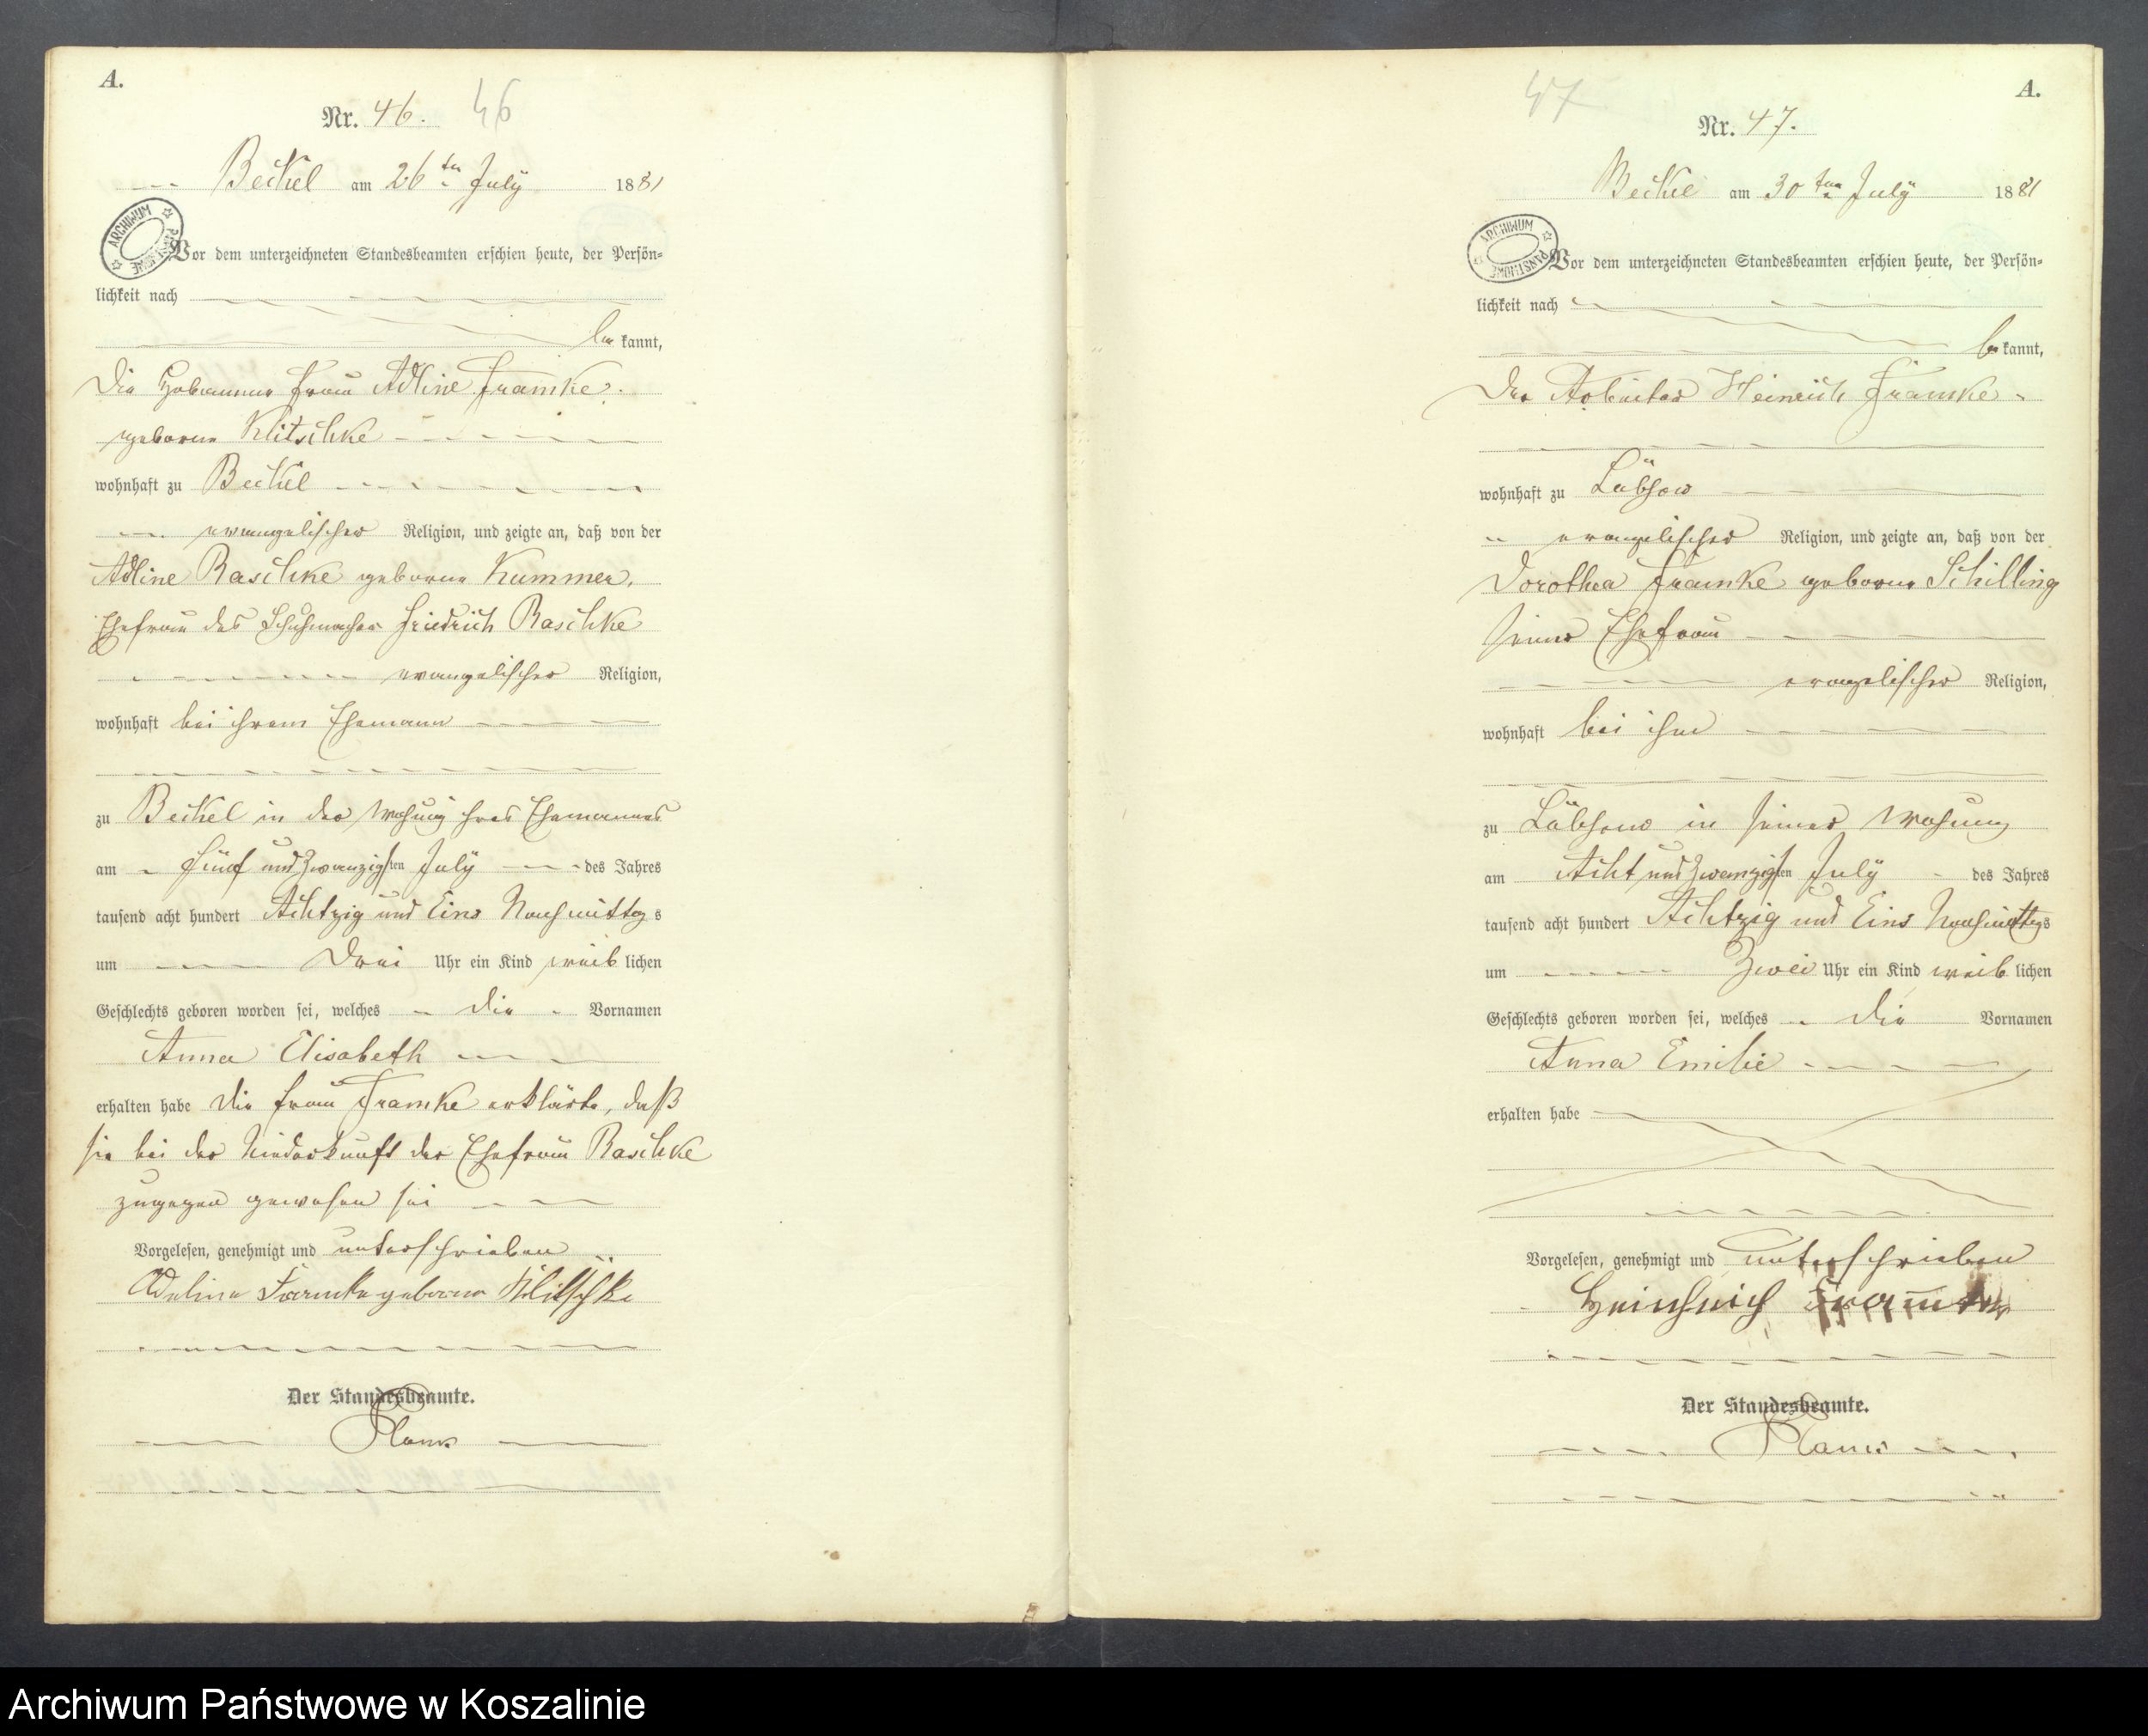 A.
Nr. 46. 46
Beckel am 26ten July 1881
ARCHIWUM PAŃSTWOWE
Vor dem unterzeichneten Standesbeamten erschien heute, der Persön=
lichkeit nach
be kannt,
die Hebamme Frau Adline Framke
geborne Klitschke
wohnhaft zu Beckel
evangelischer Religion, und zeigte an, daß von der
Adline Raschke geborne Kummer,
Ehefrau des Schuhmacher Friedrich Raschke
evangelischer Religion,
wohnhaft bei ihrem Ehemann
zu Beckel in der Wohung ihres Ehemannes
am fünf und zwanzigsten July des Jahres
tausend acht hundert Achtzig und Eins Nachmittags
um Drei Uhr ein Kind weib lichen
Geschlechts geboren worden sei, welches die Vornamen
Anna Elisabeth
erhalten habe die Frau Framke erklärte, daß
sie bei der Niederkunft der Ehefrau Raschke
zugegen gewesen sei
Vorgelesen, genehmigt und unterschrieben
Adeline Framke geborne Klitschke
Der Standesbeamte.
A.
47
Nr. 47.
Beckel am 30ten July 1881
ARCHIWUM PAŃSTWOWE
Vor dem unterzeichneten Standesbeamten erschien heute, der Persön=
lichkeit nach
be kannt,
der Arbeiter Heinrich Framke
wohnhaft zu Lübsow
evangelischer Religion, und zeigte an, daß von der
Dorothea Framke geborne Schilling
seiner Ehefrau
evangelischer Religion,
wohnhaft bei ihm
zu Lübsow in seiner Wohung
am Acht und zwanzigsten July des Jahres
tausend acht hundert Achtzig und Eins Nachmittags
um Zwei Uhr ein Kind weib lichen
Geschlechts geboren worden sei, welches die Vornamen
Anna Emilie
erhalten habe
Vorgelesen, genehmigt und unterschrieben
Heinhrich Framke
Der Standesbeamte.
Archiwum Państwowe w Koszalinie